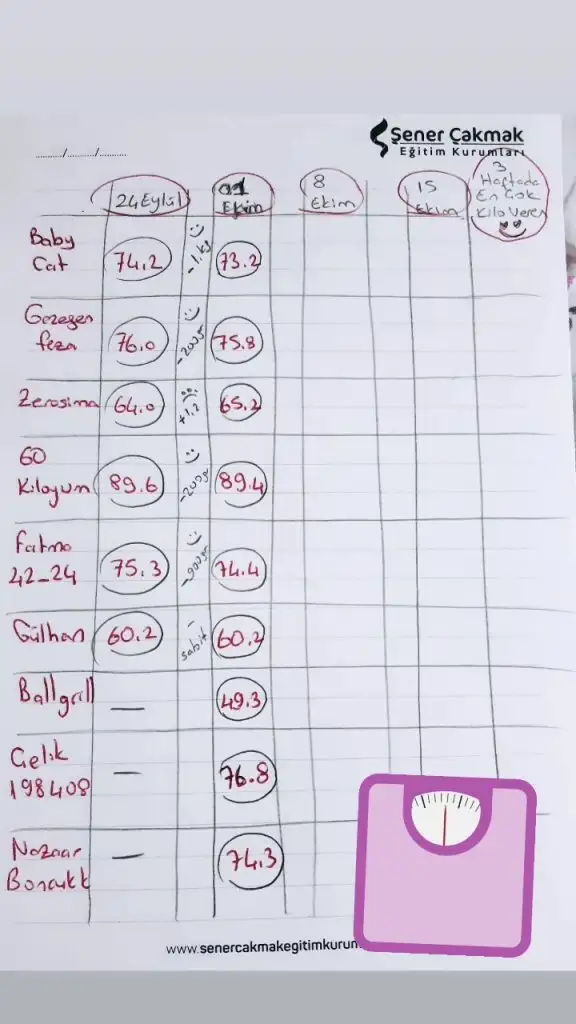 ...../...../.....
Şener Çakmak
Eğitim Kurumları
24 Eylül
01 Ekim
8 Ekim
15 Ekim
3 Haftada En Çok Kilo Veren
Baby Cat 74.2 -1.kg 73.2
Gezegen feza 76.0 -200gr 75.8
Zerosima 64.0 +1.2 65.2
60 Kiloyum 89.6 -200gr 89.4
Fatma 42-24 75.3 -900gr 74.4
Gülhan 60.2 - sabit 60.2
Ballgrll — 49.3
Çelik 198408 — 76.8
Nazaar Boncukk — 74.3
www.senercakmakegitimkurum